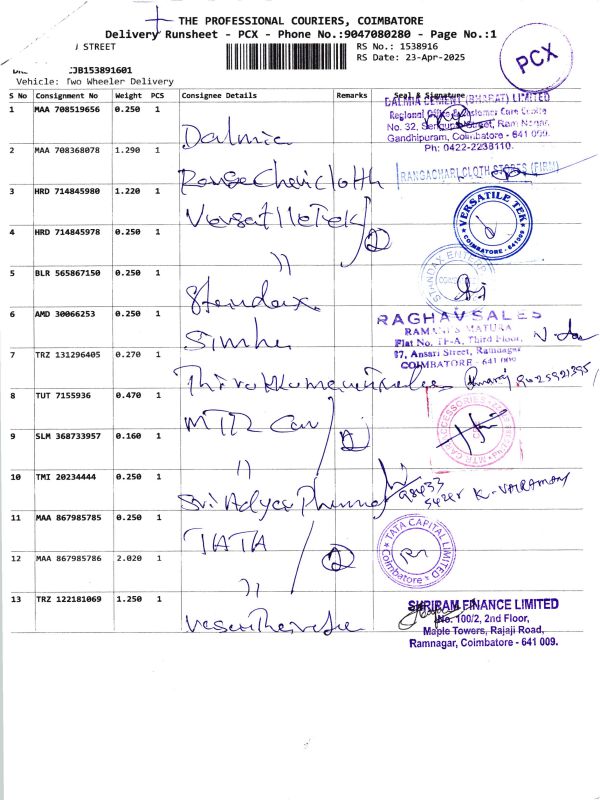 THE PROFESSIONAL COURIERS, COIMBATORE
Delivery Runsheet - PCX - Phone No.:9047080280 - Page No.:1
STREET
RS No.: 1538916
RS Date: 23-Apr-2025
PCX
CJB153891601
Vehicle: Two Wheeler Delivery
S No Consignment No Weight PCS Consignee Details Remarks Seal & Signature
1 MAA 708519656 0.250 1 Dalmia
DALMIA CEMENT (BHARAT) LIMITED
Regional Office & Customer Care Centre
No. 32, Sengupta Street, Ram Nagar,
Gandhipuram, Coimbatore - 641 009.
Ph: 0422-2238110.
2 MAA 708368078 1.290 1 Rangachari cloth
RANGACHARI CLOTH STORES (FIRM)
3 HRD 714845980 1.220 1 Versatile Tek
2
VERSATILE TEK
COIMBATORE - 641009
4 HRD 714845978 0.250 1 "
5 BLR 565867150 0.250 1 Standax
STANDAX ENTERP
6 AMD 30066253 0.250 1 Simha
RAGHAV SALES
RAMANI'S MATURA
Flat No. TF-A, Third Floor,
87, Ansari Street, Ramnagar
COIMBATORE - 641 009
7 TRZ 131296405 0.270 1
9625921395
8 TUT 7155936 0.470 1 MTR Car
2
9 SLM 368733957 0.160 1 "
10 TMI 20234444 0.250 1 Sri Adya Pharma
98433
54281 K. VAIRAMANI
11 MAA 867985785 0.250 1 TATA
2
TATA CAPITAL LIMITED
Coimbatore
12 MAA 867985786 2.020 1 "
13 TRZ 122181069 1.250 1
SHRIRAM FINANCE LIMITED
No. 100/2, 2nd Floor,
Maple Towers, Rajaji Road,
Ramnagar, Coimbatore - 641 009.